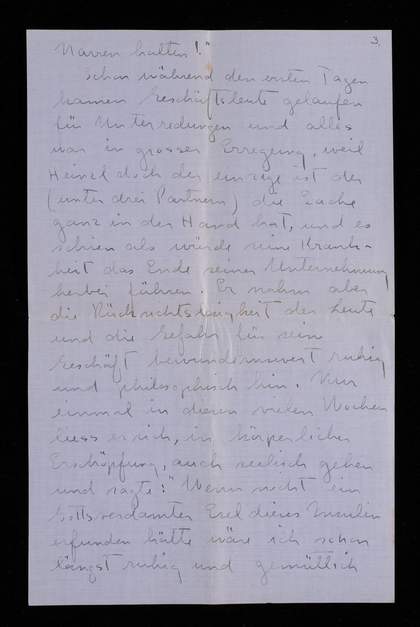 3.
Narren halten!"
Schon während den ersten Tagen
kamen Geschäftsleute gelaufen
für Unterredungen und alles
war in grosser Erregung, weil
Heinzl doch der einzige ist der
(unter drei Partnern) die Sache
ganz in der Hand hat, und es
schien als würde seine Krank-
heit das Ende seiner Unternehmung
herbei führen. Er nahm aber
die Rücksichtslosigkeit der Leute
und die Gefahr für sein
Geschäft bewundernswert ruhig
und philosophisch hin. Nur
einmal in diesen vielen Wochen
liess er sich, in körperlicher
Erschöpfung, auch seelisch gehen
und sagte: "Wenn nicht ein
Gottsverdammter Esel dieses Insulin
erfunden hätte wäre ich schon
längst ruhig und gemütlich